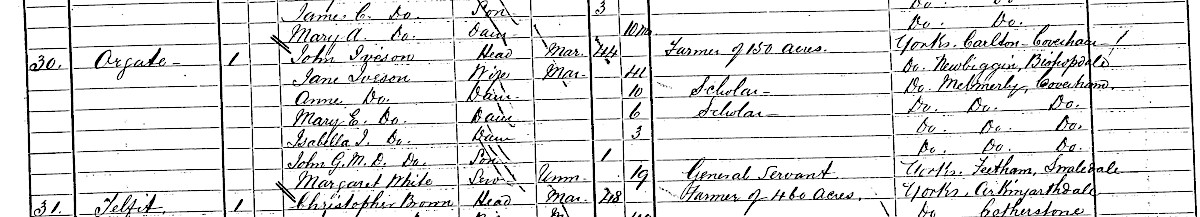 James C. Do. Son 3 Do. Do.
Mary A. Do. Daur 10m Do. Do.
30. Orgate 1 John Iveson Head Mar. 44 Farmer of 150 acres. Yorks. Carlton-Coverham
Jane Iveson Wife Mar. 41 Do. Newbiggin, Bishopdale
Anne Do. Daur 10 Scholar Do. Melmerby, Coverham.
Mary E. Do. Daur 6 Scholar Do. Do. Do.
Isabella I. Do. Daur 3 Do. Do. Do.
John G. M. D. Do. Son 1 Do. Do. Do.
Margaret White Serv Unm. 19 General Servant Yorks. Feetham,
31. Telfit 1 Christopher Brown Head Mar. 48 Farmer of 460 acres. Yorks. Arkingarthdale
Do. Cotherstone